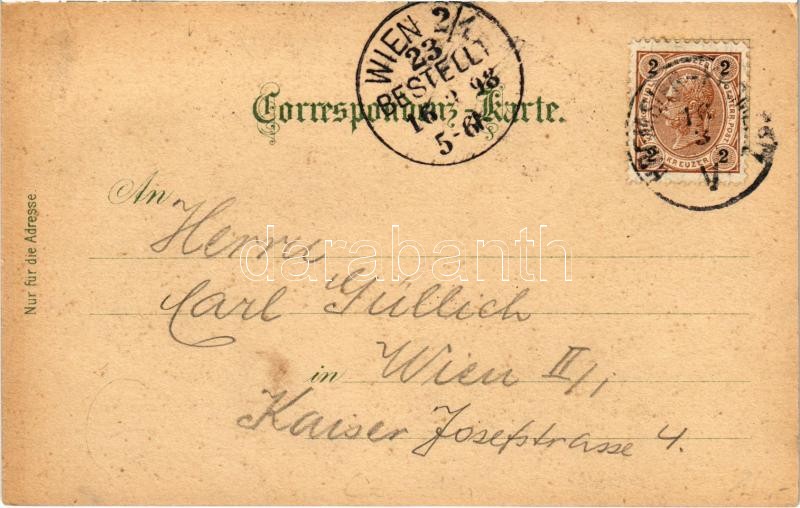 WIEN 2/1
23
BESTELLT
16 3 98
5-6
2 2
2 KREUZER 2
16
3
V
Correspondenz-Karte.
An
Herrn
Carl Güllich
in Wien II/1
Kaiser Josefstrasse 4.
Nur für die Adresse.
darabanth